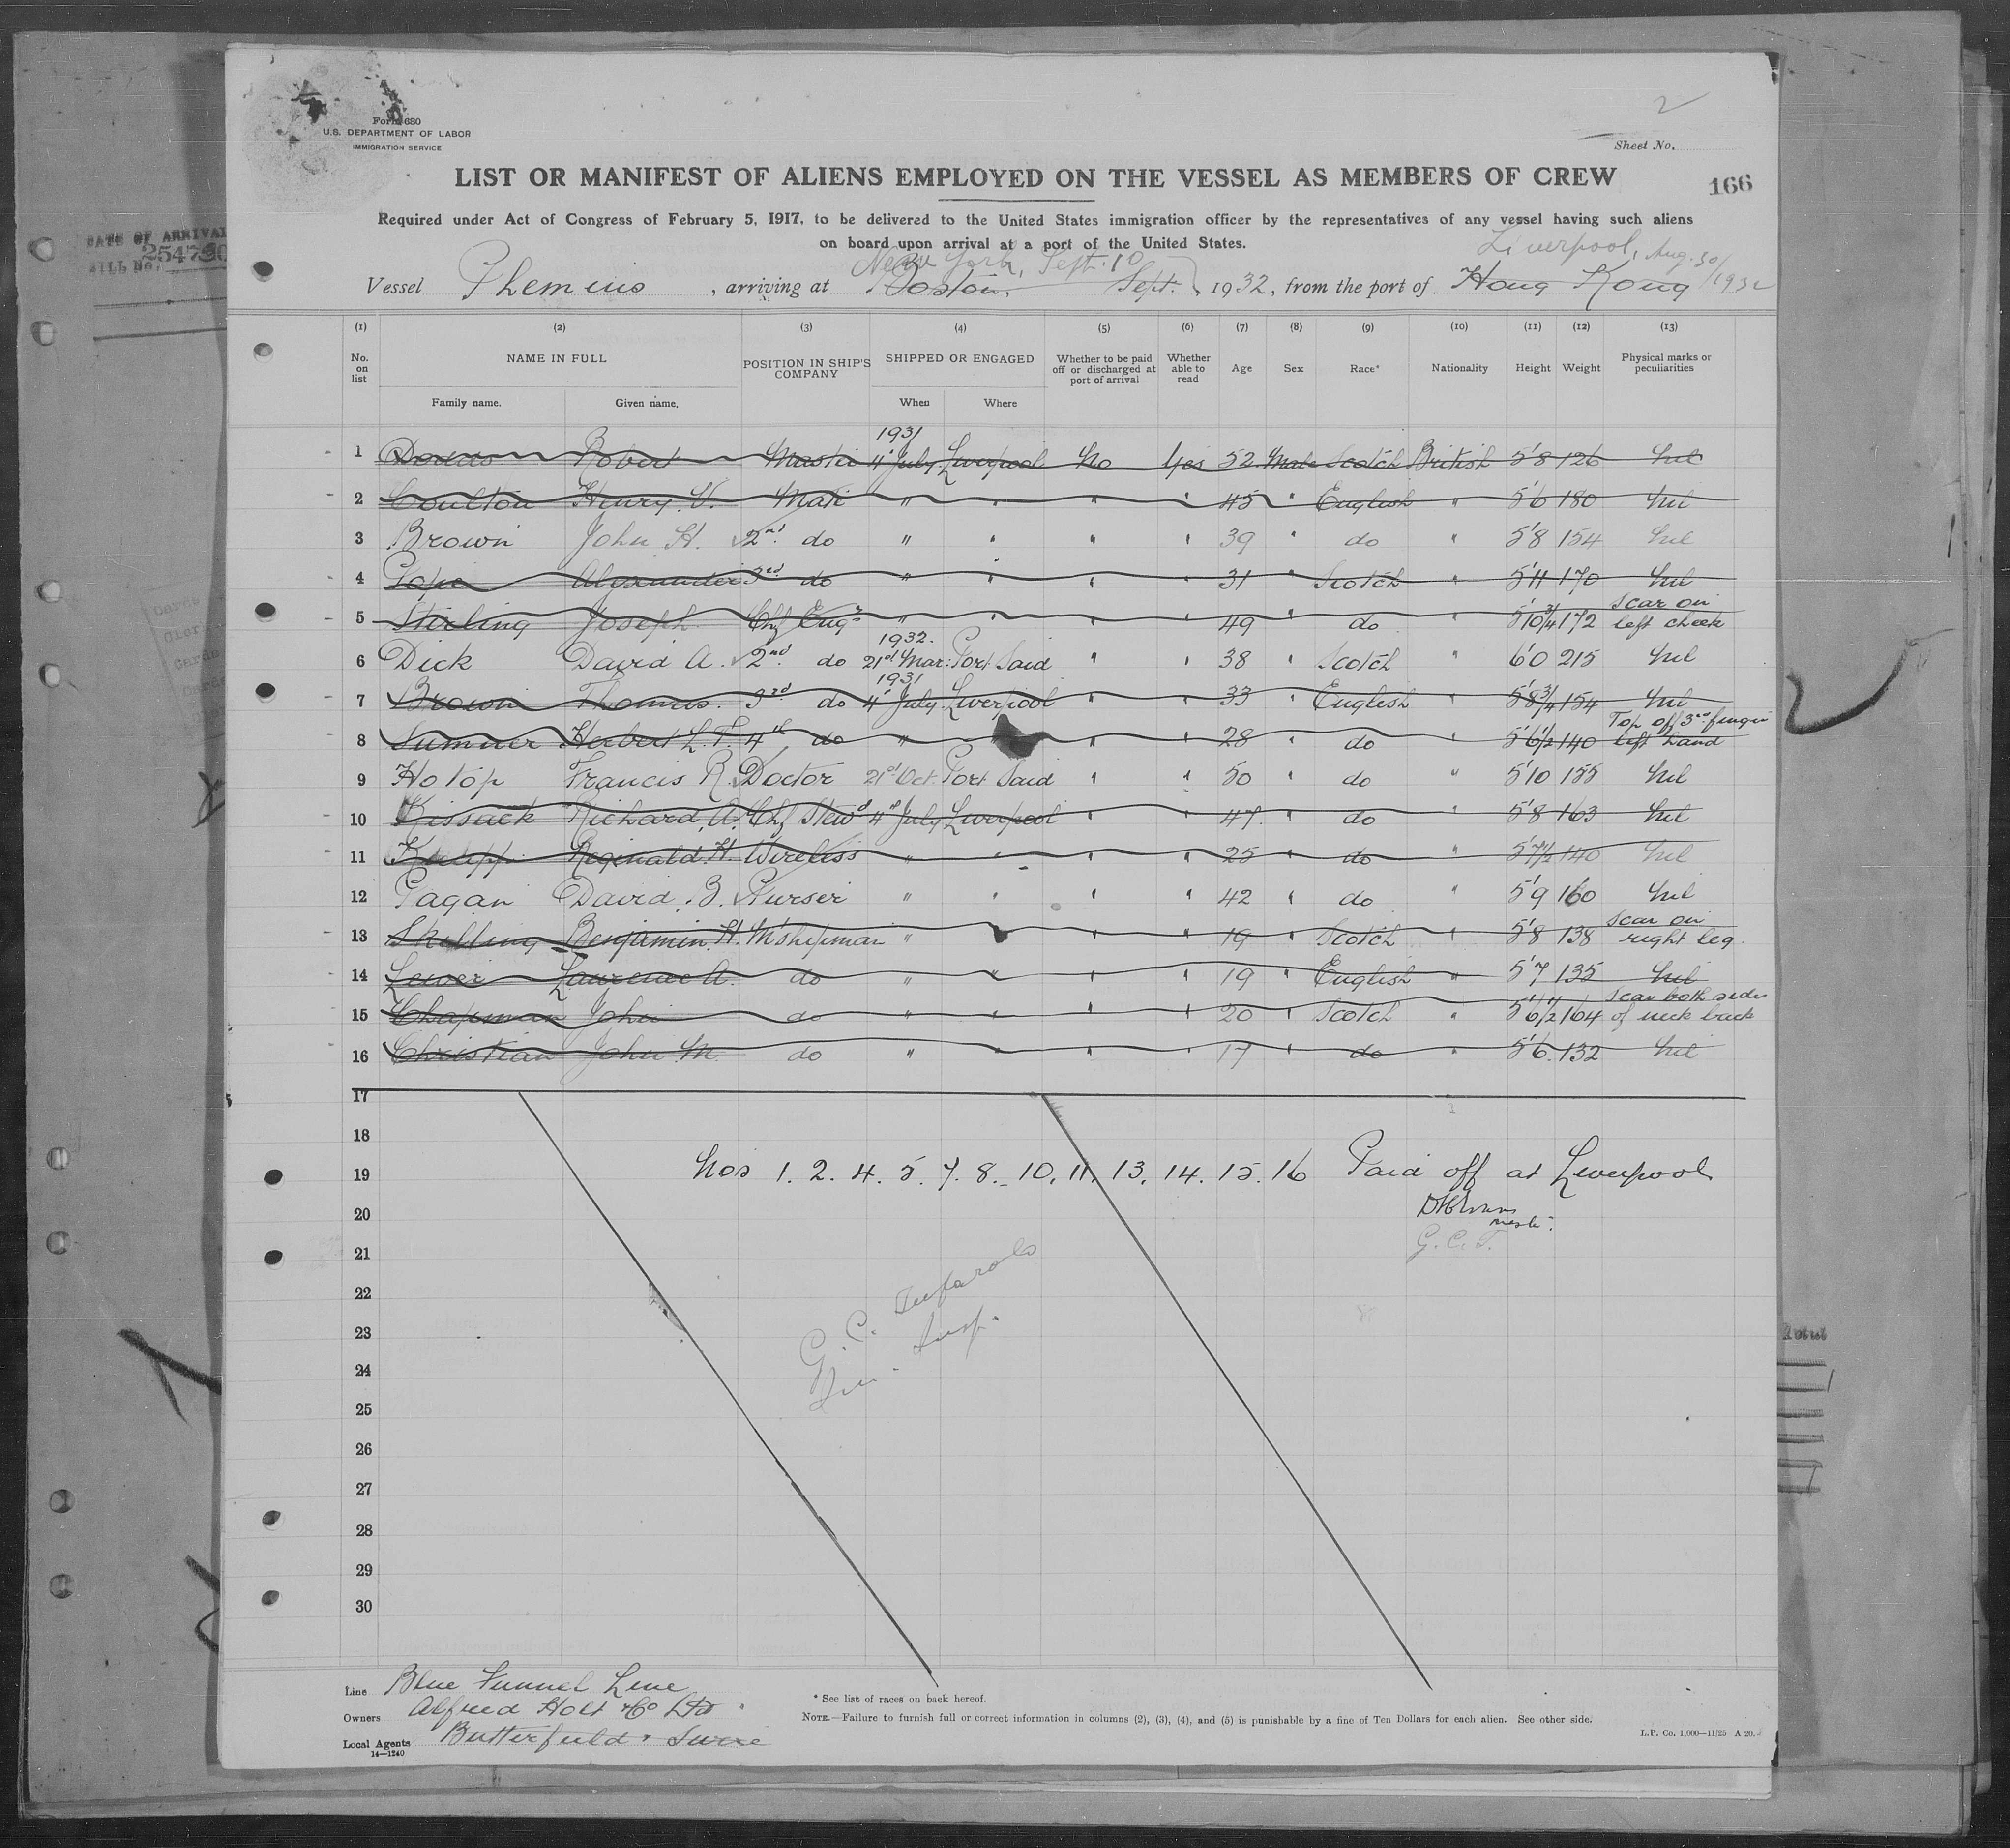 Form 680
U.S. DEPARTMENT OF LABOR
IMMIGRATION SERVICE
2
Sheet No.
LIST OR MANIFEST OF ALIENS EMPLOYED ON THE VESSEL AS MEMBERS OF CREW
166
Required under Act of Congress of February 5, 1917, to be delivered to the United States immigration officer by the representatives of any vessel having such aliens
on board upon arrival at a port of the United States.
DATE OF ARRIVAL
BILL No.
New York, Sept. 10 Liverpool, Aug. 30/1932
Vessel Phemius, arriving at Boston, Sept. 1932, from the port of Hong Kong
(1) (2) (3) (4) (5) (6) (7) (8) (9) (10) (11) (12) (13)
No. on list NAME IN FULL POSITION IN SHIP'S COMPANY SHIPPED OR ENGAGED Whether to be paid off or discharged at port of arrival Whether able to read Age Sex Race* Nationality Height Weight Physical marks or peculiarities
Family name. Given name. When Where
1931
1 Robert Master 4" July Liverpool No Yes 52 Male Scotch British 5'8 126 Nil
2 Coulton Henry. V. Mate " " " " 45 " English " 5'6 180 Nil
3 Brown John H. 2nd do " " " " 39 " do " 5'8 154 Nil
4 Pope Alexander 3rd do " " " " 31 " Scotch " 5'11 170 Nil
5 Stirling Joseph Chf Engr " " " " 49 " do " 5'10 3/4 172 Scar on left cheek
1932.
6 Dick David A. 2nd do 21st Mar: Port Said " " 38 " Scotch " 6'0 215 Nil
1931
7 Brown Thomas. 3rd do 4" July Liverpool " " 33 " English " 5'8 3/4 154 Nil
8 Sumner Herbert L.T. 4th do " " " " 28 " do " 5'6 1/2 140 Top off 3rd finger left hand
9 Hotop Francis R. Doctor 21st Oct. Port Said " " 50 " do " 5'10 155 Nil
10 Kissack Richard A. Chf Stewd 4" July Liverpool " " 47. " do " 5'8 163 Nil
11 Reginald H. Wireless " " " " 25 " do " 5'7 1/2 140 Nil
12 Pagan David B. Purser " " " " 42 " do " 5'9 160 Nil
13 Skelling Benjamin H. M'shipman " " " " 19 " Scotch " 5'8 138 Scar on right leg.
14 Lewer Laurence A. do " " " " 19 " English " 5'7 135 Nil
15 Chapman John do " " " " 20 " Scotch " 5'6 1/2 164 Scar both sides of neck back
16 Christian John M. do " " " " 17 " do " 5'6. 132 Nil
17
18
19 Nos 1. 2. 4. 5. 7. 8. 10. 11. 13. 14. 15. 16 Paid off at Liverpool
20
G. C. T.
21
22
G. C.
23
Insp.
24
Im.
25
26
27
28
29
30
Line Blue Funnel Line
Owners Alfred Holt & Co Ltd
Local Agents Butterfield & Swire
14—1240
* See list of races on back hereof.
NOTE.—Failure to furnish full or correct information in columns (2), (3), (4), and (5) is punishable by a fine of Ten Dollars for each alien. See other side.
L.P. Co. 1,000—11/25 A 20.